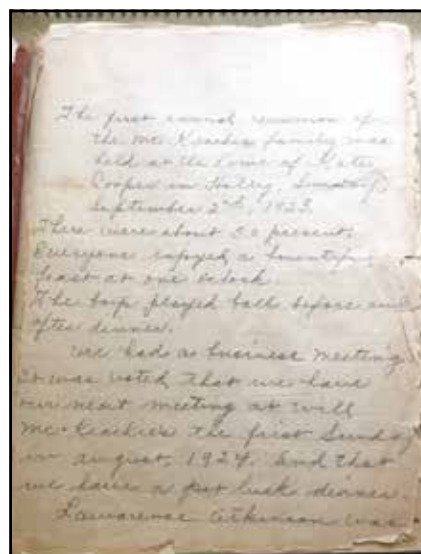 The first annual reunion of
the Mc Keachie family was
held at the home of Kate
Cooper in Holley, Sunday,
September 2nd, 1923.
There were about 50 present.
Everyone enjoyed a bountiful
feast at one oclock.
The boys played ball before and
after dinner.
We had a business meeting
It was voted that we have
our next meeting at Will
Mc Keachie's the first Sunday
in august, 1924. And that
we have a pot luck dinner.
Lawarence Atkinson was